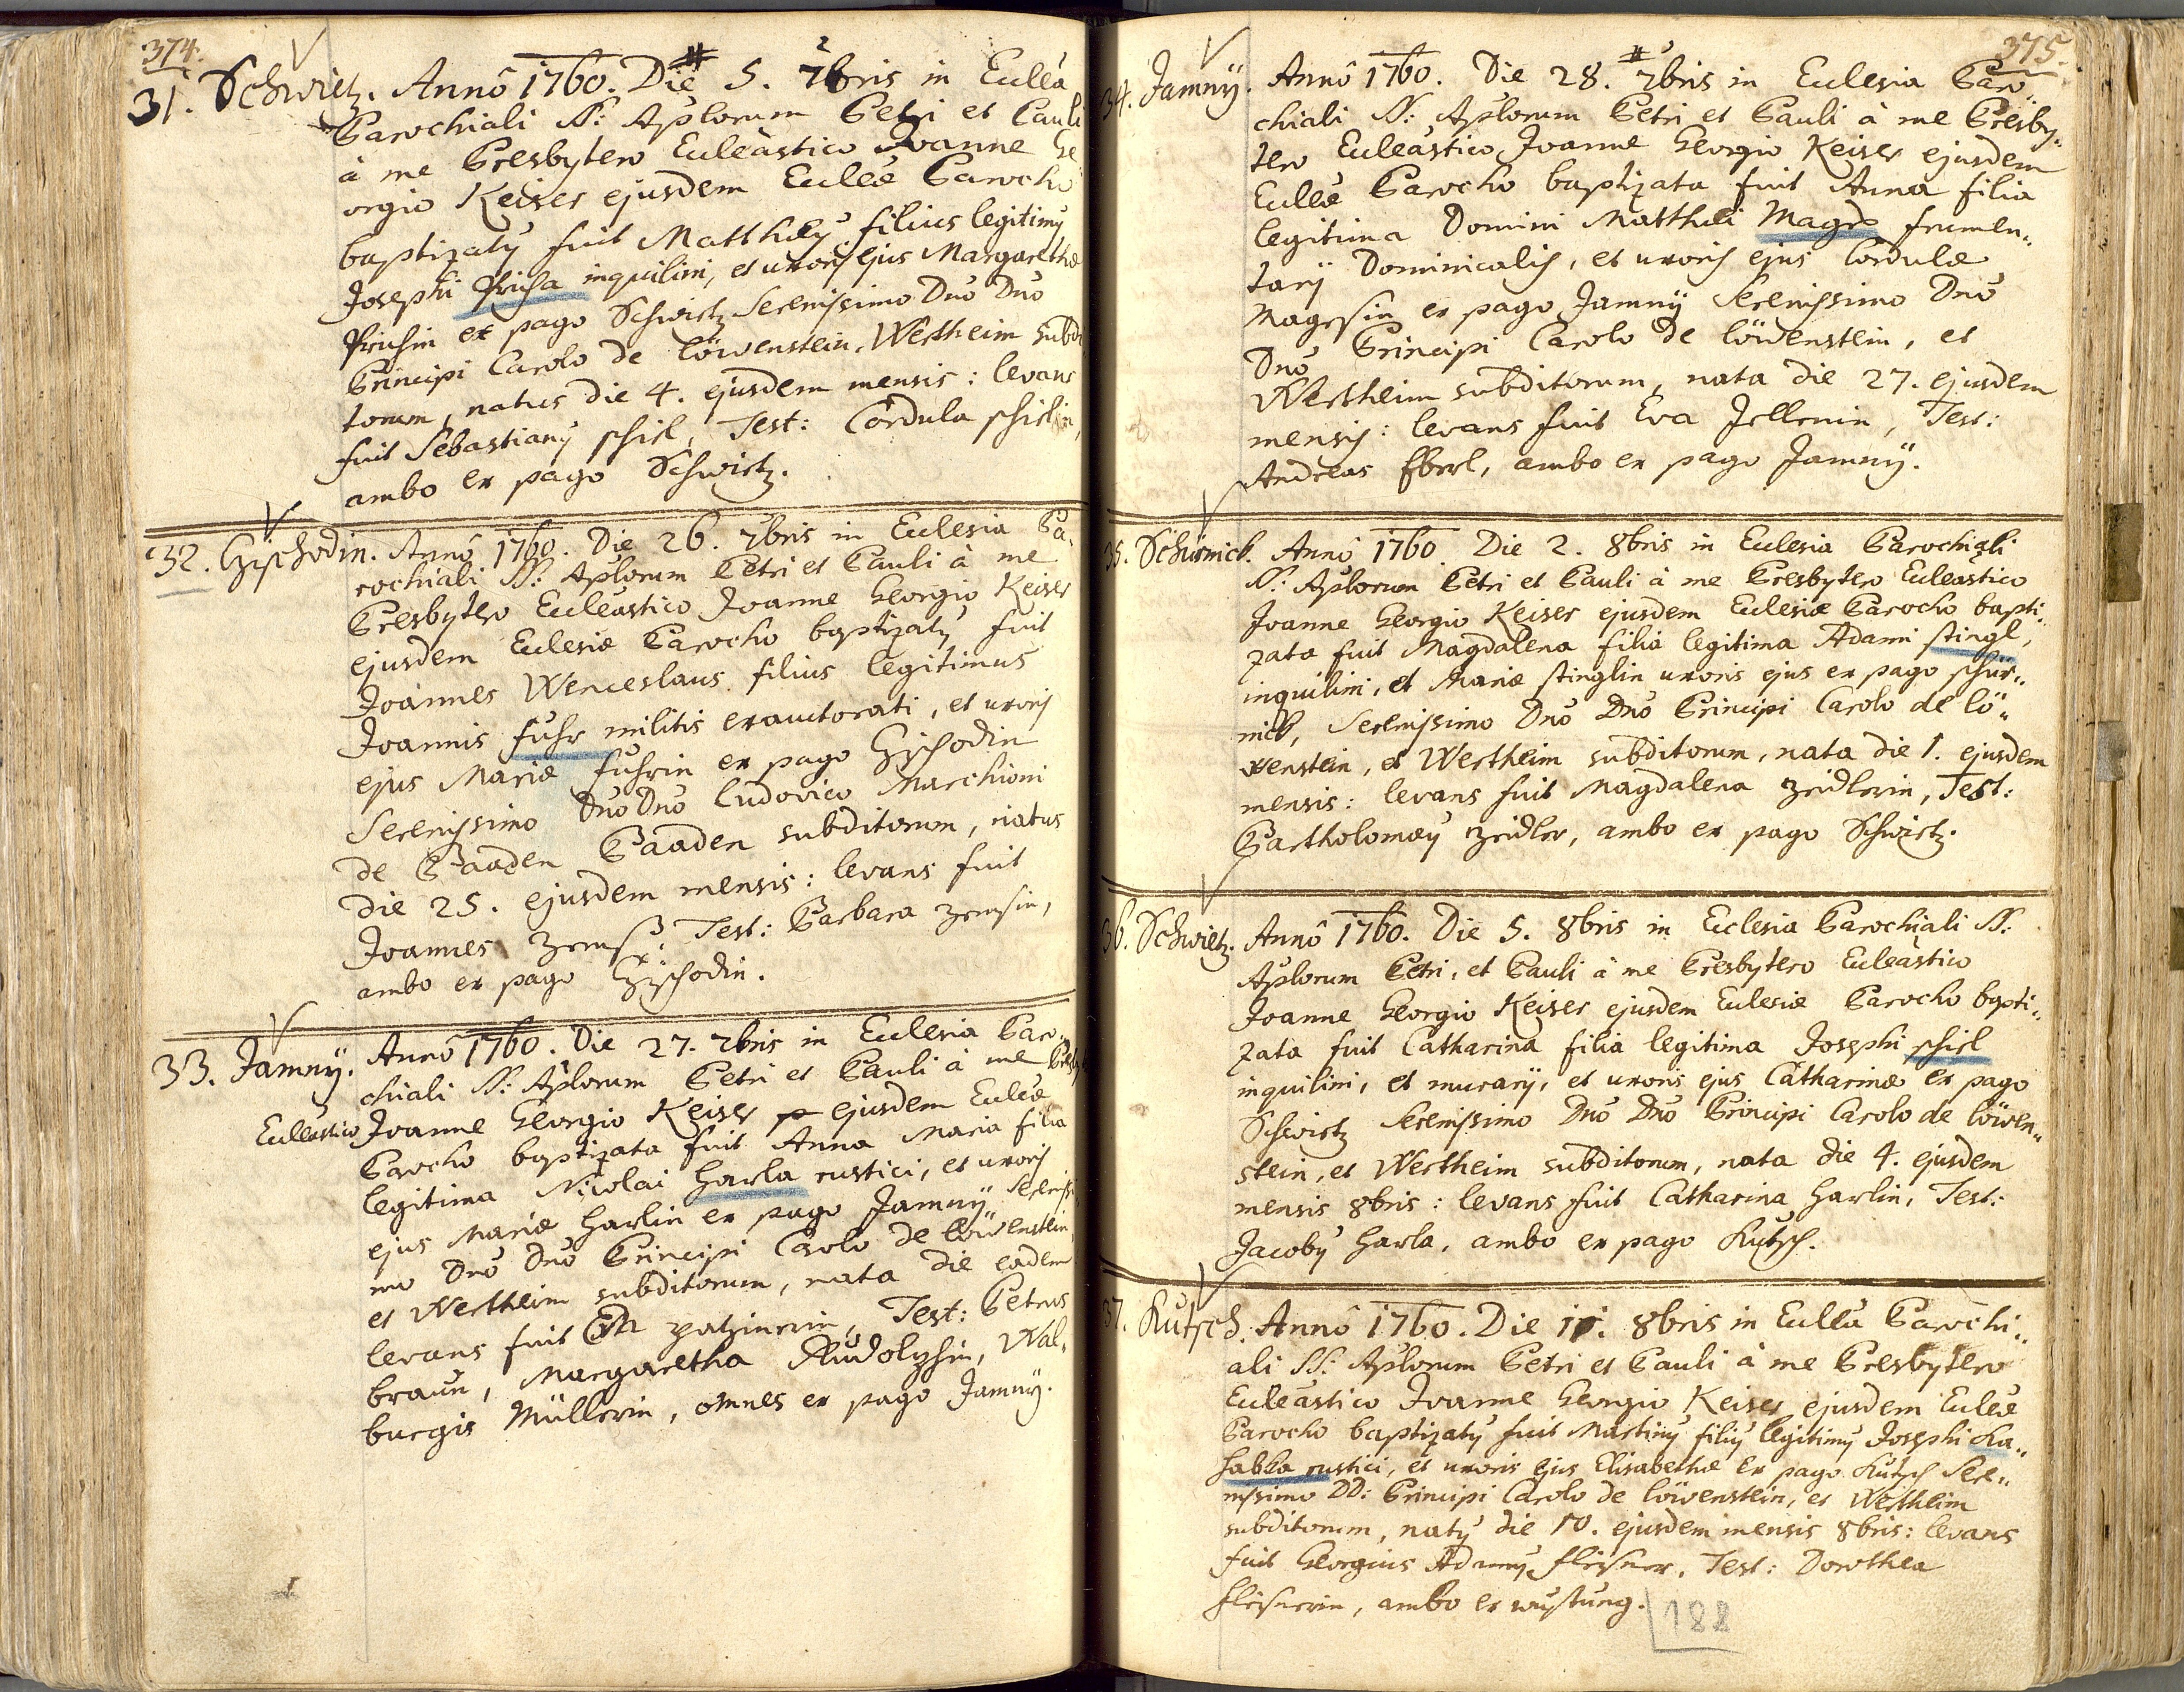 374.
31. Schwirtz. Annô 1760. Die 5. 7bris in Ecclâ
Parochiali SS: Aplorum Petri et Pauli
à me Presbytero Eccleâstico Joanne Ge„
orgio Keiser ejusdem Eccleæ Parocho
baptizatȳ fuit Matthæȳ filius legitimȳ
Josephi inquilini, et uxoris ejus Margarethæ
ex pago Schwirtz Serenissimo Dnō Dnō
Principi Carolo de Löwenstein, Wertheim subdi
torum, natus die 4. ejusdem mensis: levans
fuit Sebastianȳ schirl, Test: Cordula schirlin,
ambo ex pago Schwirtz.
32. Gzischodin. Annô 1760. Die 26. 7bris in Ecclesia Pa„
rochiali SS: Aplorum Petri et Pauli à me
Presbytero Eccleâstico Joanne Georgio Keiser
ejusdem Ecclesiæ Parocho baptizatȳ fuit
Joannes Wenceslaus filius legitimus
Joannis fuhr militis exauctorati, et uxoris
ejus Mariæ fuhrin ex pago Gzischodin
Serenissimo Dnō Dnō Ludovico Marchioni
de Baaden Baaden subditorum, natus
die 25. ejusdem mensis: levans fuit
Joannes Test: Barbara
ambo ex pago Gzischodin.
33. Jamnÿ. Annô 1760. Die 27. 7bris in Ecclesia Paro„
chiali SS: Aplorum Petri et Pauli à me Presby
Eccleâstico Joanne Georgio Keiser p ejusdem Eccleæ
Parocho baptizata fuit Anna Maria filia
legitima Nicolai Harla rustici, et uxoris
ejus Mariæ Harlin ex pago Jamnÿ Serenissi
mo Dnō Dnō Principi Carolo de Löwenstein,
et Wertheim subditorum, nata die eadem
levans fuit Eva Test: Petrus
braun, Margaretha Rudolphin, Wal„
burgis Müllerin, omnes ex pago Jamnÿ.
375.
34. Jamnÿ. Annô 1760. Die 28. 7bris in Ecclesia Paro„
chiali SS: Aplorum Petri et Pauli à me Presby„
tero Eccleâstico Joanne Georgio Keiser ejusdem
Eccleæ Parocho baptizata fuit Anna filia
legitima Domini Matthæi Magrs frumen„
tarÿ Dominicalis, et uxoris ejus Cordulæ
Magrsin ex pago Jamnÿ Serenissimo Dnō
Dnō Principi Carolo de Löwenstein, et
Wertheim subditorum, nata die 27. ejusdem
mensis: levans fuit Eva Jellenin, Test:
Andreas Eberl, ambo ex pago Jamnÿ.
35. Schürnich. Annô 1760. Die 2. 8bris in Ecclesia Parochiali
SS: Aplorum Petri et Pauli à me Presbytero Eccleâstico
Joanne Georgio Keiser ejusdem Ecclesiæ Parocho bapti„
zata fuit Magdalena filia legitima Adami stingl,
inquilini, et Mariæ stinglin uxoris ejus ex pago schür„
nich, Serenissimo Dnō Dnō Principi Carolo de Lö„
wenstein, et Wertheim subditorum, nata die 1. ejusdem
mensis: levans fuit Magdalena zeidlerin, Test:
Bartholomæȳ zeidler, ambo ex pago Schwirtz.
36. Schwirtz. Annô 1760. Die 5. 8bris in Ecclesia Parochiali SS:
Aplorum Petri, et Pauli à me Presbytero Eccleâstico
Joanne Georgio Keiser ejusdem Ecclesiæ Parocho bapti„
zata fuit Catharina filia legitima Josephi schirl
inquilini, et murarÿ, et uxoris ejus Catharinæ ex pago
Schwirtz Serenissimo Dnō Dnō Principi Carolo de Löwen„
stein, et Wertheim subditorum, nata die 4. ejusdem
mensis 8bris: levans fuit Catharina Harlin, Test:
Jacobȳ Harla, ambo ex pago Kutsch.
37. Kutsch. Annô 1760. Die 11. 8bris in Ecclâ Parochi„
ali SS: Aplorum Petri et Pauli à me Presbytero
Eccleâstico Joanne Georgio Keiser ejusdem Eccleæ
Parocho baptizatȳ fuit Martinȳ filiȳ legitimȳ Josephi Ka„
habka rustici, et uxoris ejus Elisabethæ ex pago Kutsch Sere„
nissimo DD: Principi Carolo de Löwenstein, et Wertheim
subditorum, natȳ die 10. ejusdem mensis 8bris: levans
fuit Georgius Adamȳ fleisner, Test: Dorothea
fleisnerin, ambo ex wüstung.
188